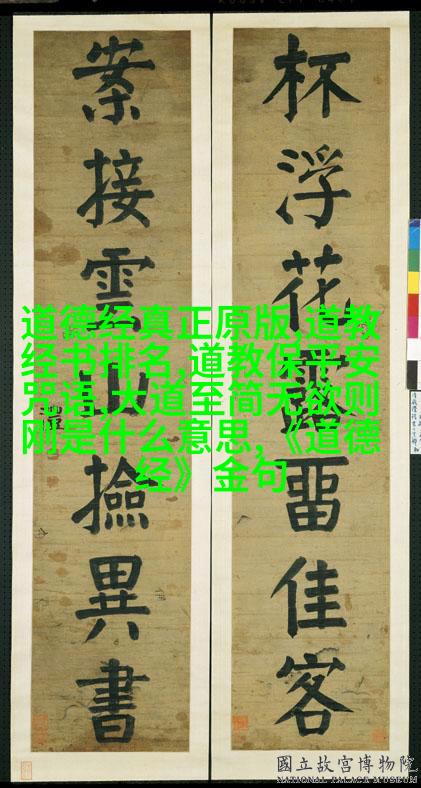 杯浮花露畱佳客
案接雲山撿異書
道德经真正原版,道教
经书排名,道教保平安
咒语,大道至简无欲则
刚是什么意思,《道德
经》金句
國立故宮博物院
NATIONAL PALACE MUSEUM